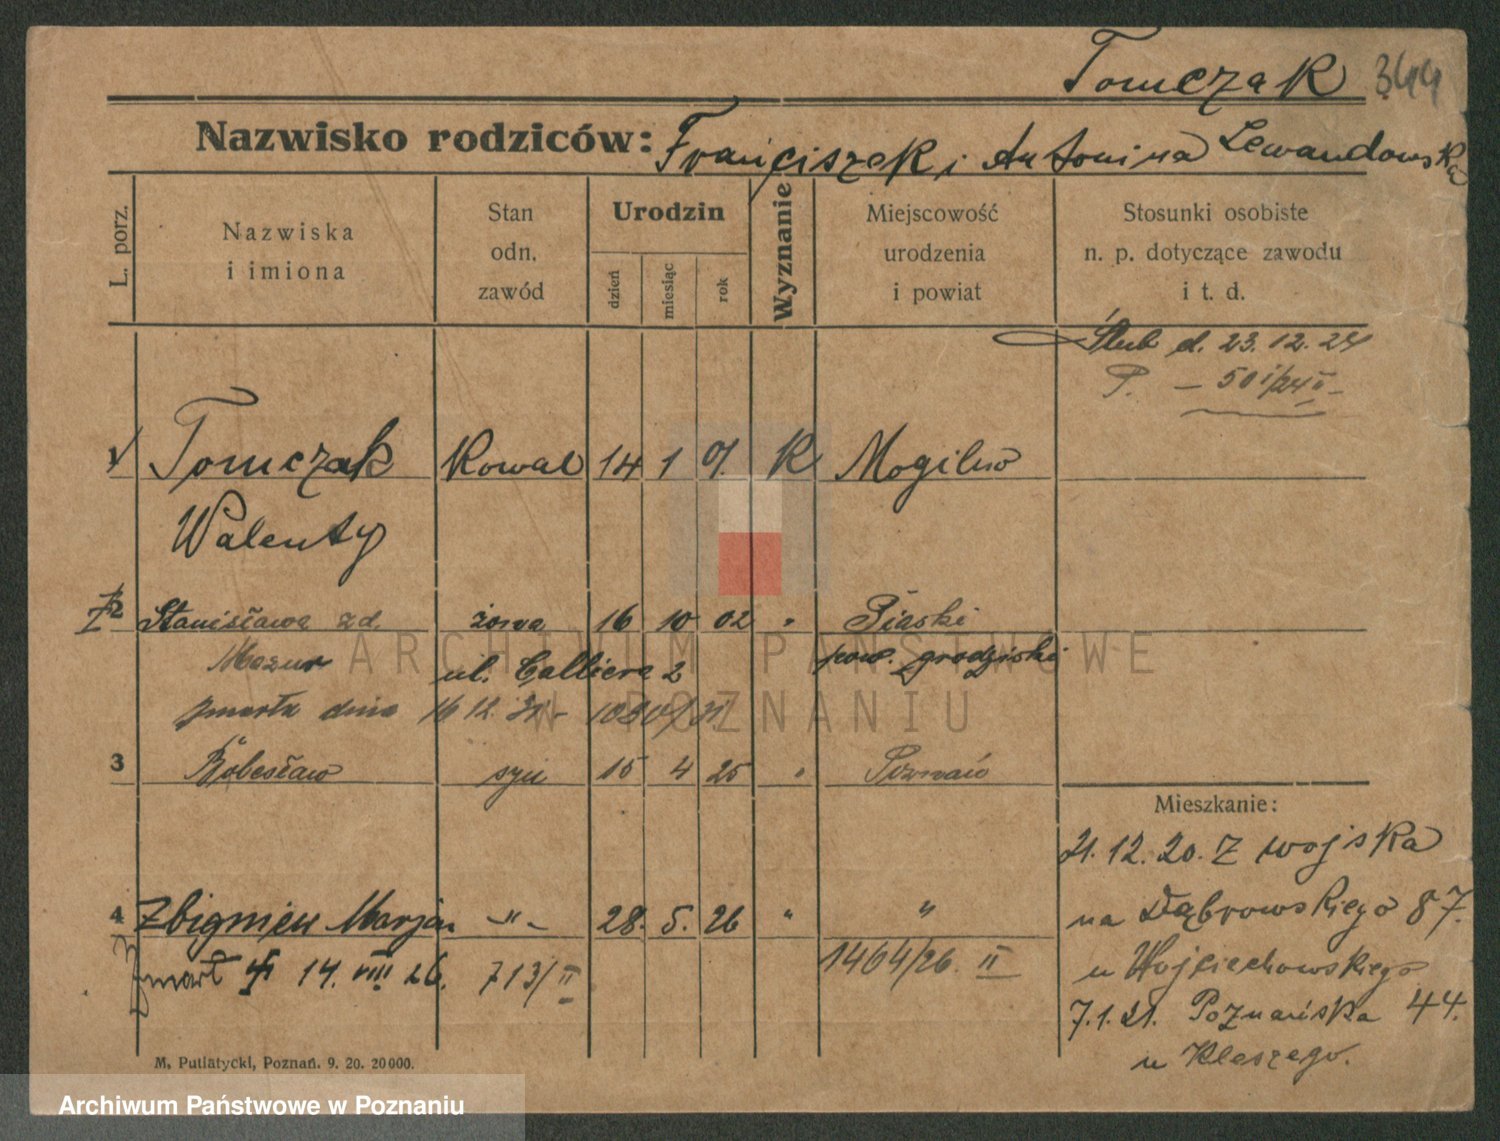 Tomczak 344
Nazwisko rodziców: Franciszek i Antonina Lewandowska
L. porz.
Nazwiska
i imiona
Stan
odn.
zawód
Urodzin
dzień
miesiąc
rok
Wyznanie
Miejscowość
urodzenia
i powiat
Stosunki osobiste
n. p. dotyczące zawodu
i t. d.
Ślub d. 23. 12. 24
P. — 501/24 II —
1 Tomczak Kowal 14 1 01. K Mogilno
Walenty
2 Stanisława zd. żona 16 10 02 " Piaski
Mazur ul. Calliera 2 pow. grodziski
zmarła dnia 16 12. 31 -
3 Bolesław syn 15 4 25 " Poznań
4 Zbigniew Marjan -"- 28. 5. 26 " "
Zmarł 14. VIII 26. 713/II 1464/26. II
Mieszkanie:
21. 12. 20. Z wojska
na Dąbrowskiego 87.
u Wojciechowskiego
7. 1. 21. Poznańska 44.
u Kleszego.
M. Putiatycki, Poznań. 9. 20. 20 000.
ARCHIWUM PAŃSTWOWE
W POZNANIU
Archiwum Państwowe w Poznaniu